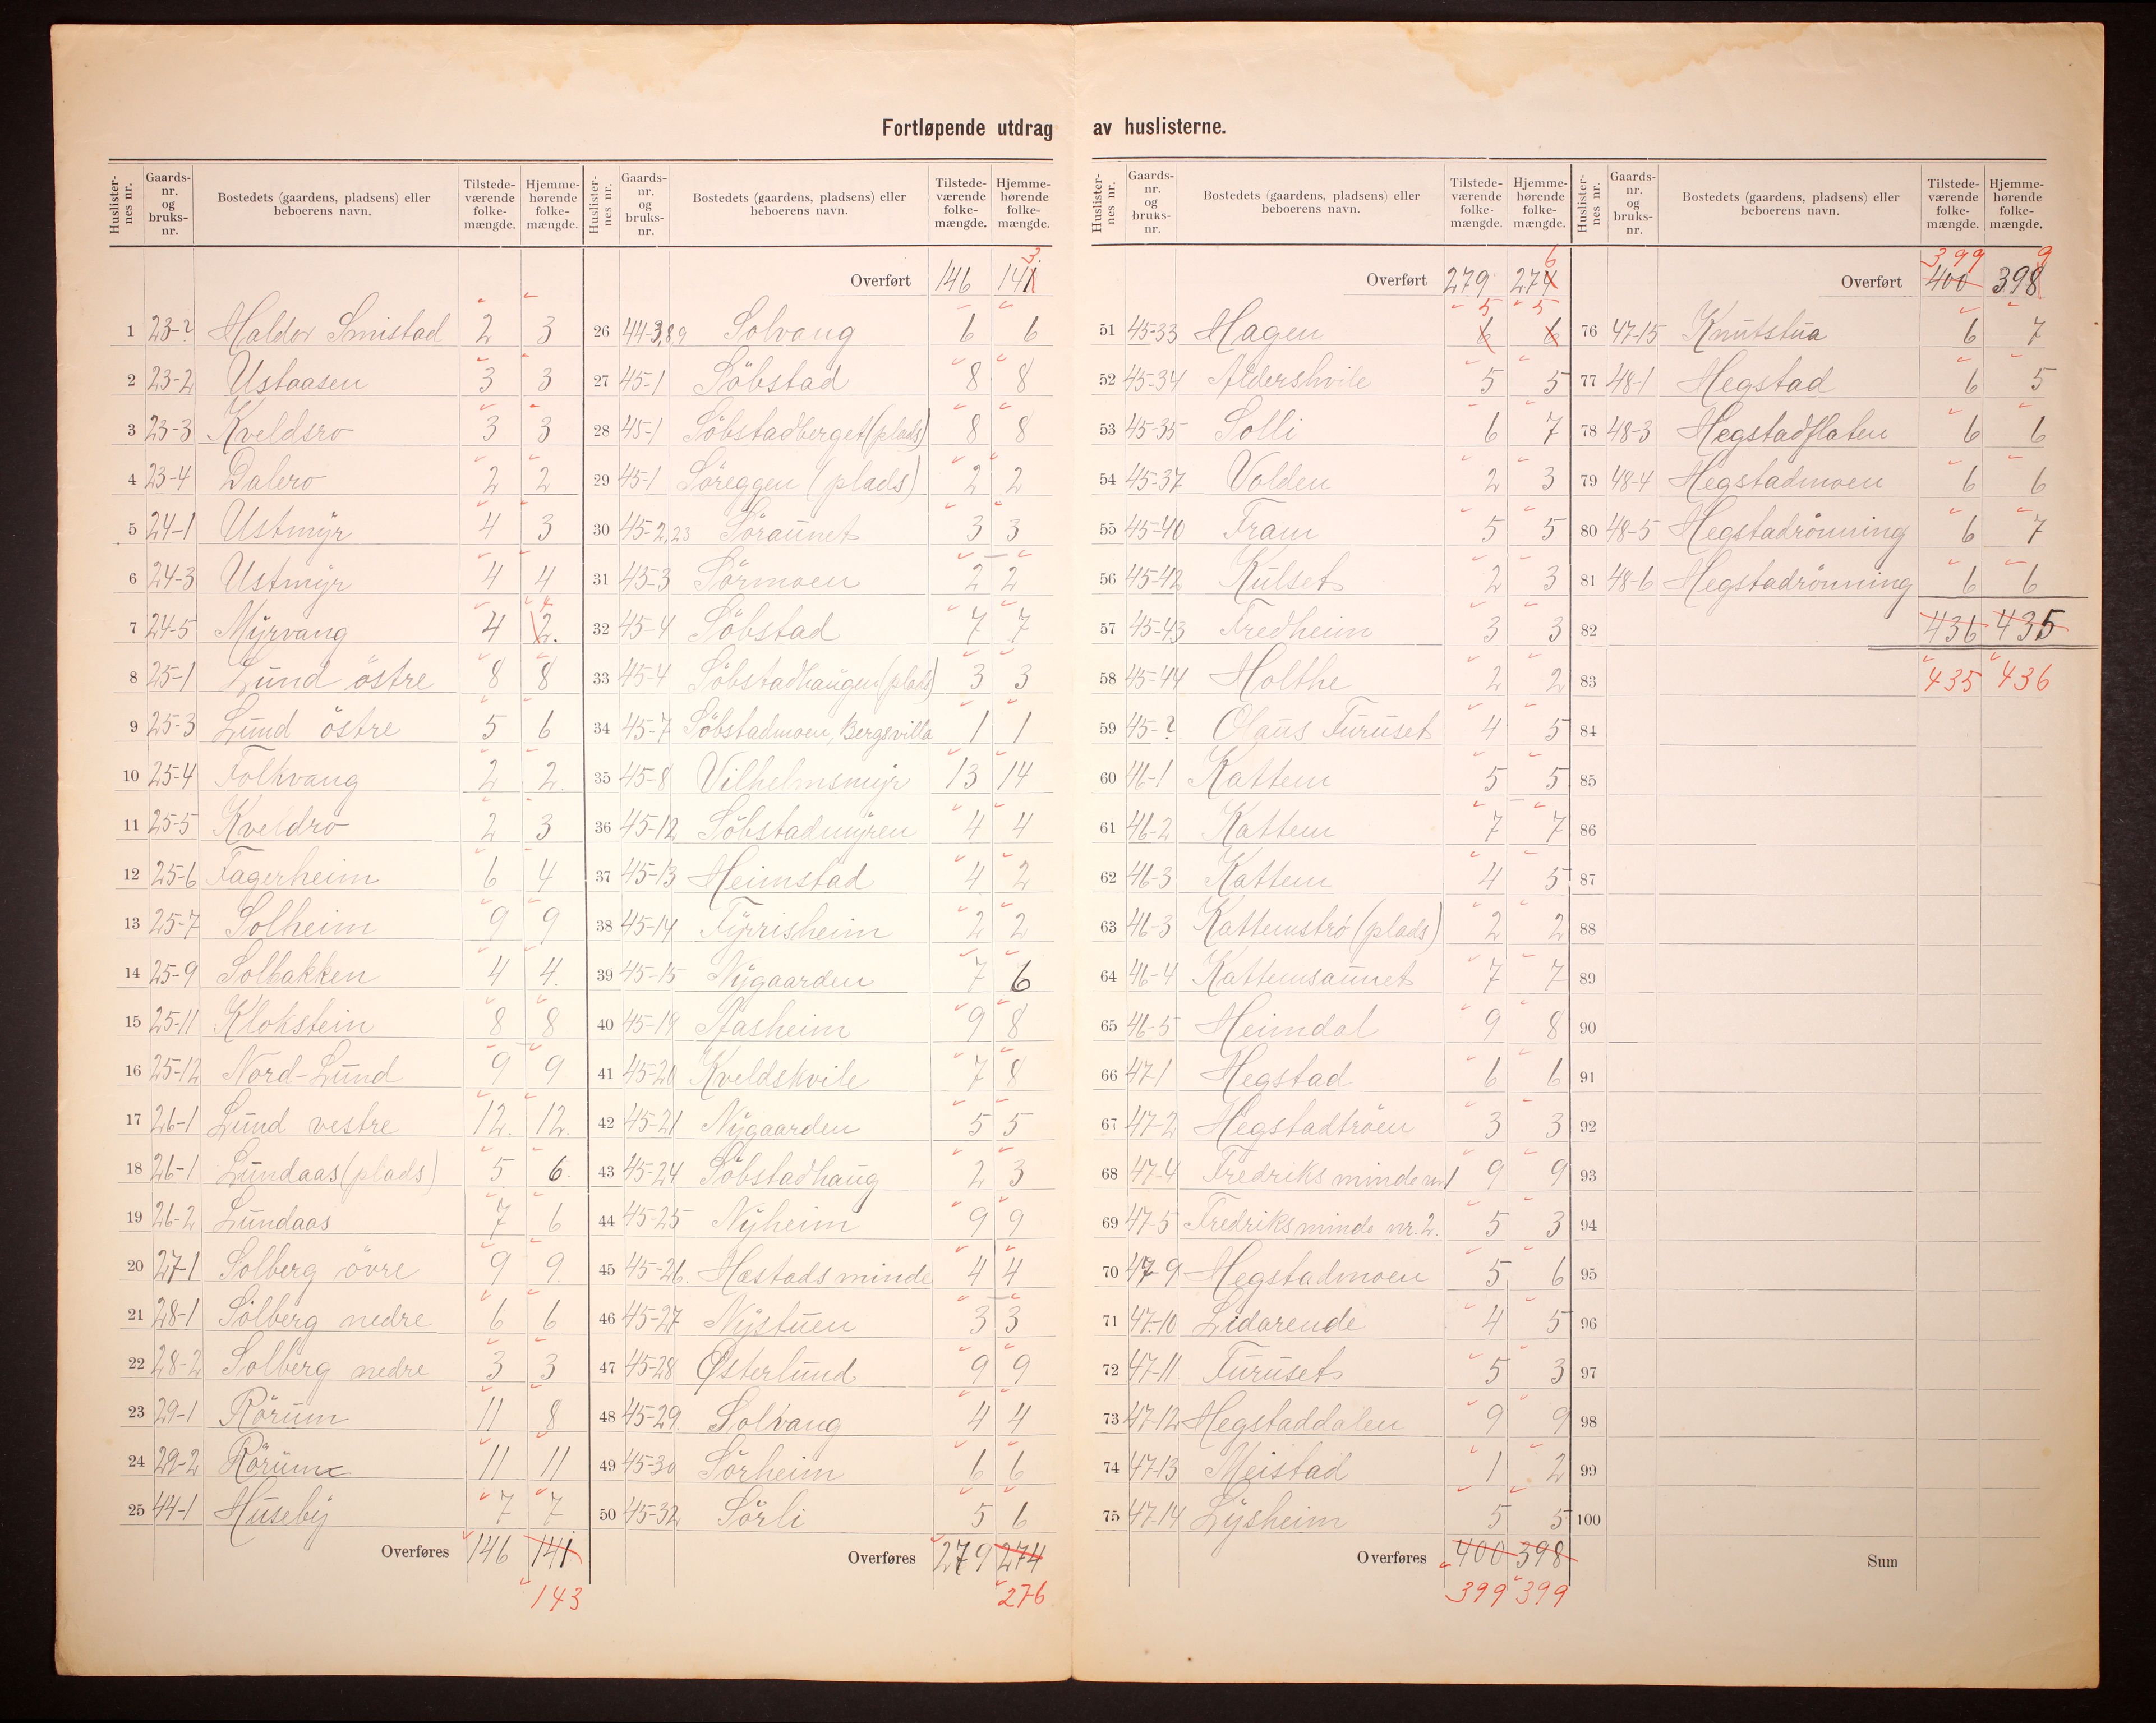 Fortløpende utdrag av huslisterne.
Huslister-nes nr. | Gaards-nr. og bruks-nr. | Bostedets (gaardens, pladsens) eller beboerens navn. | Tilstede-værende folke-mængde. | Hjemme-hørende folke-mængde.
1 23-? Haldor Smistad 2 3
2 23-2 Ustaasen 3 3
3 23-3 Kveldsro 3 3
4 23-4 Dalero 2 2
5 24-1 Ustmyr 4 3
6 24-3 Ustmyr 4 4
7 24-5 Myrvang 4 2. 4
8 25-1 Lund östre 8 8
9 25-3 Lund östre 5 6
10 25-4 Folkvang 2 2.
11 25-5 Kveldro 2 3
12 25-6 Fagerheim 6 4
13 25-7 Solheim 9 9
14 25-9 Solbakken 4 4.
15 25-11 Klokstein 8 8
16 25-12 Nord-Lund 9 9
17 26-1 Lund vestre 12. 12.
18 26-1 Lundaas (plads) 5 6.
19 26-2 Lundaas 7 6
20 27-1 Solberg övre 9 9.
21 28-1 Solberg nedre 6 6
22 28-2 Solberg nedre 3 3
23 29-1 Rörum 11 8
24 29-2 Rörum 11 11
25 44-1 Huseby 7 7
Overføres 146 141
143
Huslister-nes nr. | Gaards-nr. og bruks-nr. | Bostedets (gaardens, pladsens) eller beboerens navn. | Tilstede-værende folke-mængde. | Hjemme-hørende folke-mængde.
Overført 146 141 3.
26 44-3,8,9 Solvang 6 6
27 45-1 Söbstad 8 8
28 45-1 Söbstadberget (plads) 8 8
29 45-1 Söreggen (plads) 2 2
30 45-2,23 Söraunet 3 3
31 45-3 Sörmoen 2 2
32 45-4 Söbstad 7 7
33 45-4 Söbstadhaugen (plads) 3 3
34 45-7 Söbstadmoen, Bergsvilla 1 1
35 45-8 Vilhelmsmyr 13 14
36 45-12 Söbstadmyren 4 4
37 45-13 Heimstad 4 2
38 45-14 Tyrisheim 2 2
39 45-15 Nygaarden 7 6
40 45-19 Aasheim 9 8
41 45-20 Kveldshvile 7 8
42 45-21 Nygaarden 5 5
43 45-24 Söbstadhaug 2 3
44 45-25 Nyheim 9 9
45 45-26. Hæstads minde 4 4
46 45-27 Nystuen 3 3
47 45-28 Østerlund 9 9
48 45-29. Solvang 4 4
49 45-30 Sörheim 6 6
50 45-32 Sörli 5 6
Overføres 279 274
276
Huslister-nes nr. | Gaards-nr. og bruks-nr. | Bostedets (gaardens, pladsens) eller beboerens navn. | Tilstede-værende folke-mængde. | Hjemme-hørende folke-mængde.
Overført 279 274 6
51 45-33 Hagen 6 5 6 5
52 45-34 Aldershvile 5 5
53 45-35 Solli 6 7
54 45-37 Volden 2 3
55 45-40 Fram 5 5
56 45-42 Kulset 2 3
57 45-43 Fredheim 3 3
58 45-44 Holthe 2 2
59 45-? Olaus Furuset 4 5
60 46-1 Kattem 5 5
61 46-2 Kattem 7 7
62 46-3 Kattem 4 5
63 46-3 Kattemströ (plads) 2 2
64 46-4 Kattemsaunet 7 7
65 46-5 Heimdal 9 8
66 47-1 Hegstad 6 6
67 47-2 Hegstadtröen 3 3
68 47-4 Fredriks minde nr 1 9 9
69 47-5 Fredriksminde nr. 2. 5 3
70 47-9 Hegstadmoen 5 6
71 47-10 Lidarende 4 5
72 47-11 Furuset 5 3
73 47-12 Hegstaddalen 9 9
74 47-13 Meistad 1 2
75 47-14 Lysheim 5 5
Overføres 400 398
399 399
Huslister-nes nr. | Gaards-nr. og bruks-nr. | Bostedets (gaardens, pladsens) eller beboerens navn. | Tilstede-værende folke-mængde. | Hjemme-hørende folke-mængde.
399 9
Overført 400 398
76 47-15 Knutstua 6 7
77 48-1 Hegstad 6 5
78 48-3 Hegstadflaten 6 6
79 48-4 Hegstadmoen 6 6
80 48-5 Hegstadrönning 6 7
81 48-6 Hegstadrönning 6 6
82 436 435
83 435 436
84
85
86
87
88
89
90
91
92
93
94
95
96
97
98
99
100
Sum